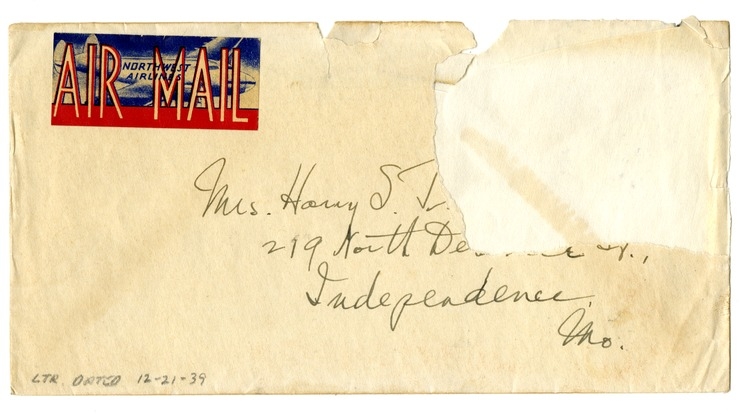 AIR MAIL
NORTHWEST
AIRLINES
Mrs. Harry S. Tr
219 North De St.,
Independence,
Mo.
LTR. DATED 12-21-39